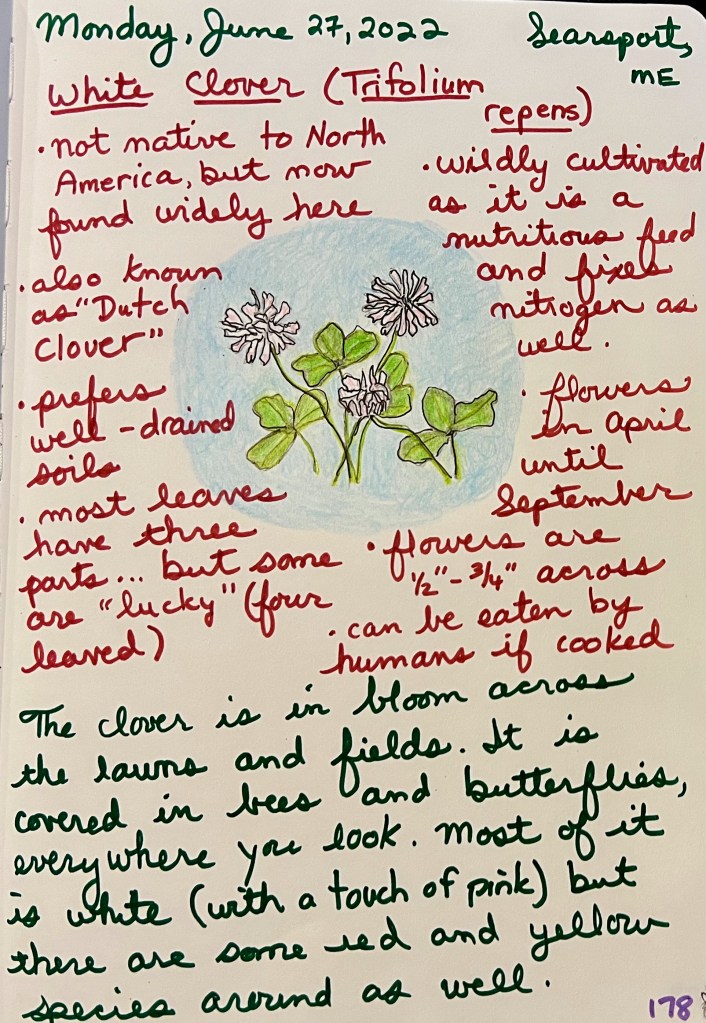 Monday, June 27, 2022
Searsport,
ME
White Clover (Trifolium
repens)
• not native to North
America, but now
found widely here
• also known
as "Dutch
Clover"
• prefers
well-drained
soils
• most leaves
have three
parts... but some
are "lucky" (four
leaved)
• wildly cultivated
as it is a
nutritious feed
and fixes
nitrogen as
well.
• flowers
in April
until
September
• flowers are
1/2"-3/4" across
• can be eaten by
humans if cooked
The clover is in bloom across
the lawns and fields. It is
covered in bees and butterflies,
everywhere you look. Most of it
is white (with a touch of pink) but
there are some red and yellow
species around as well.
178